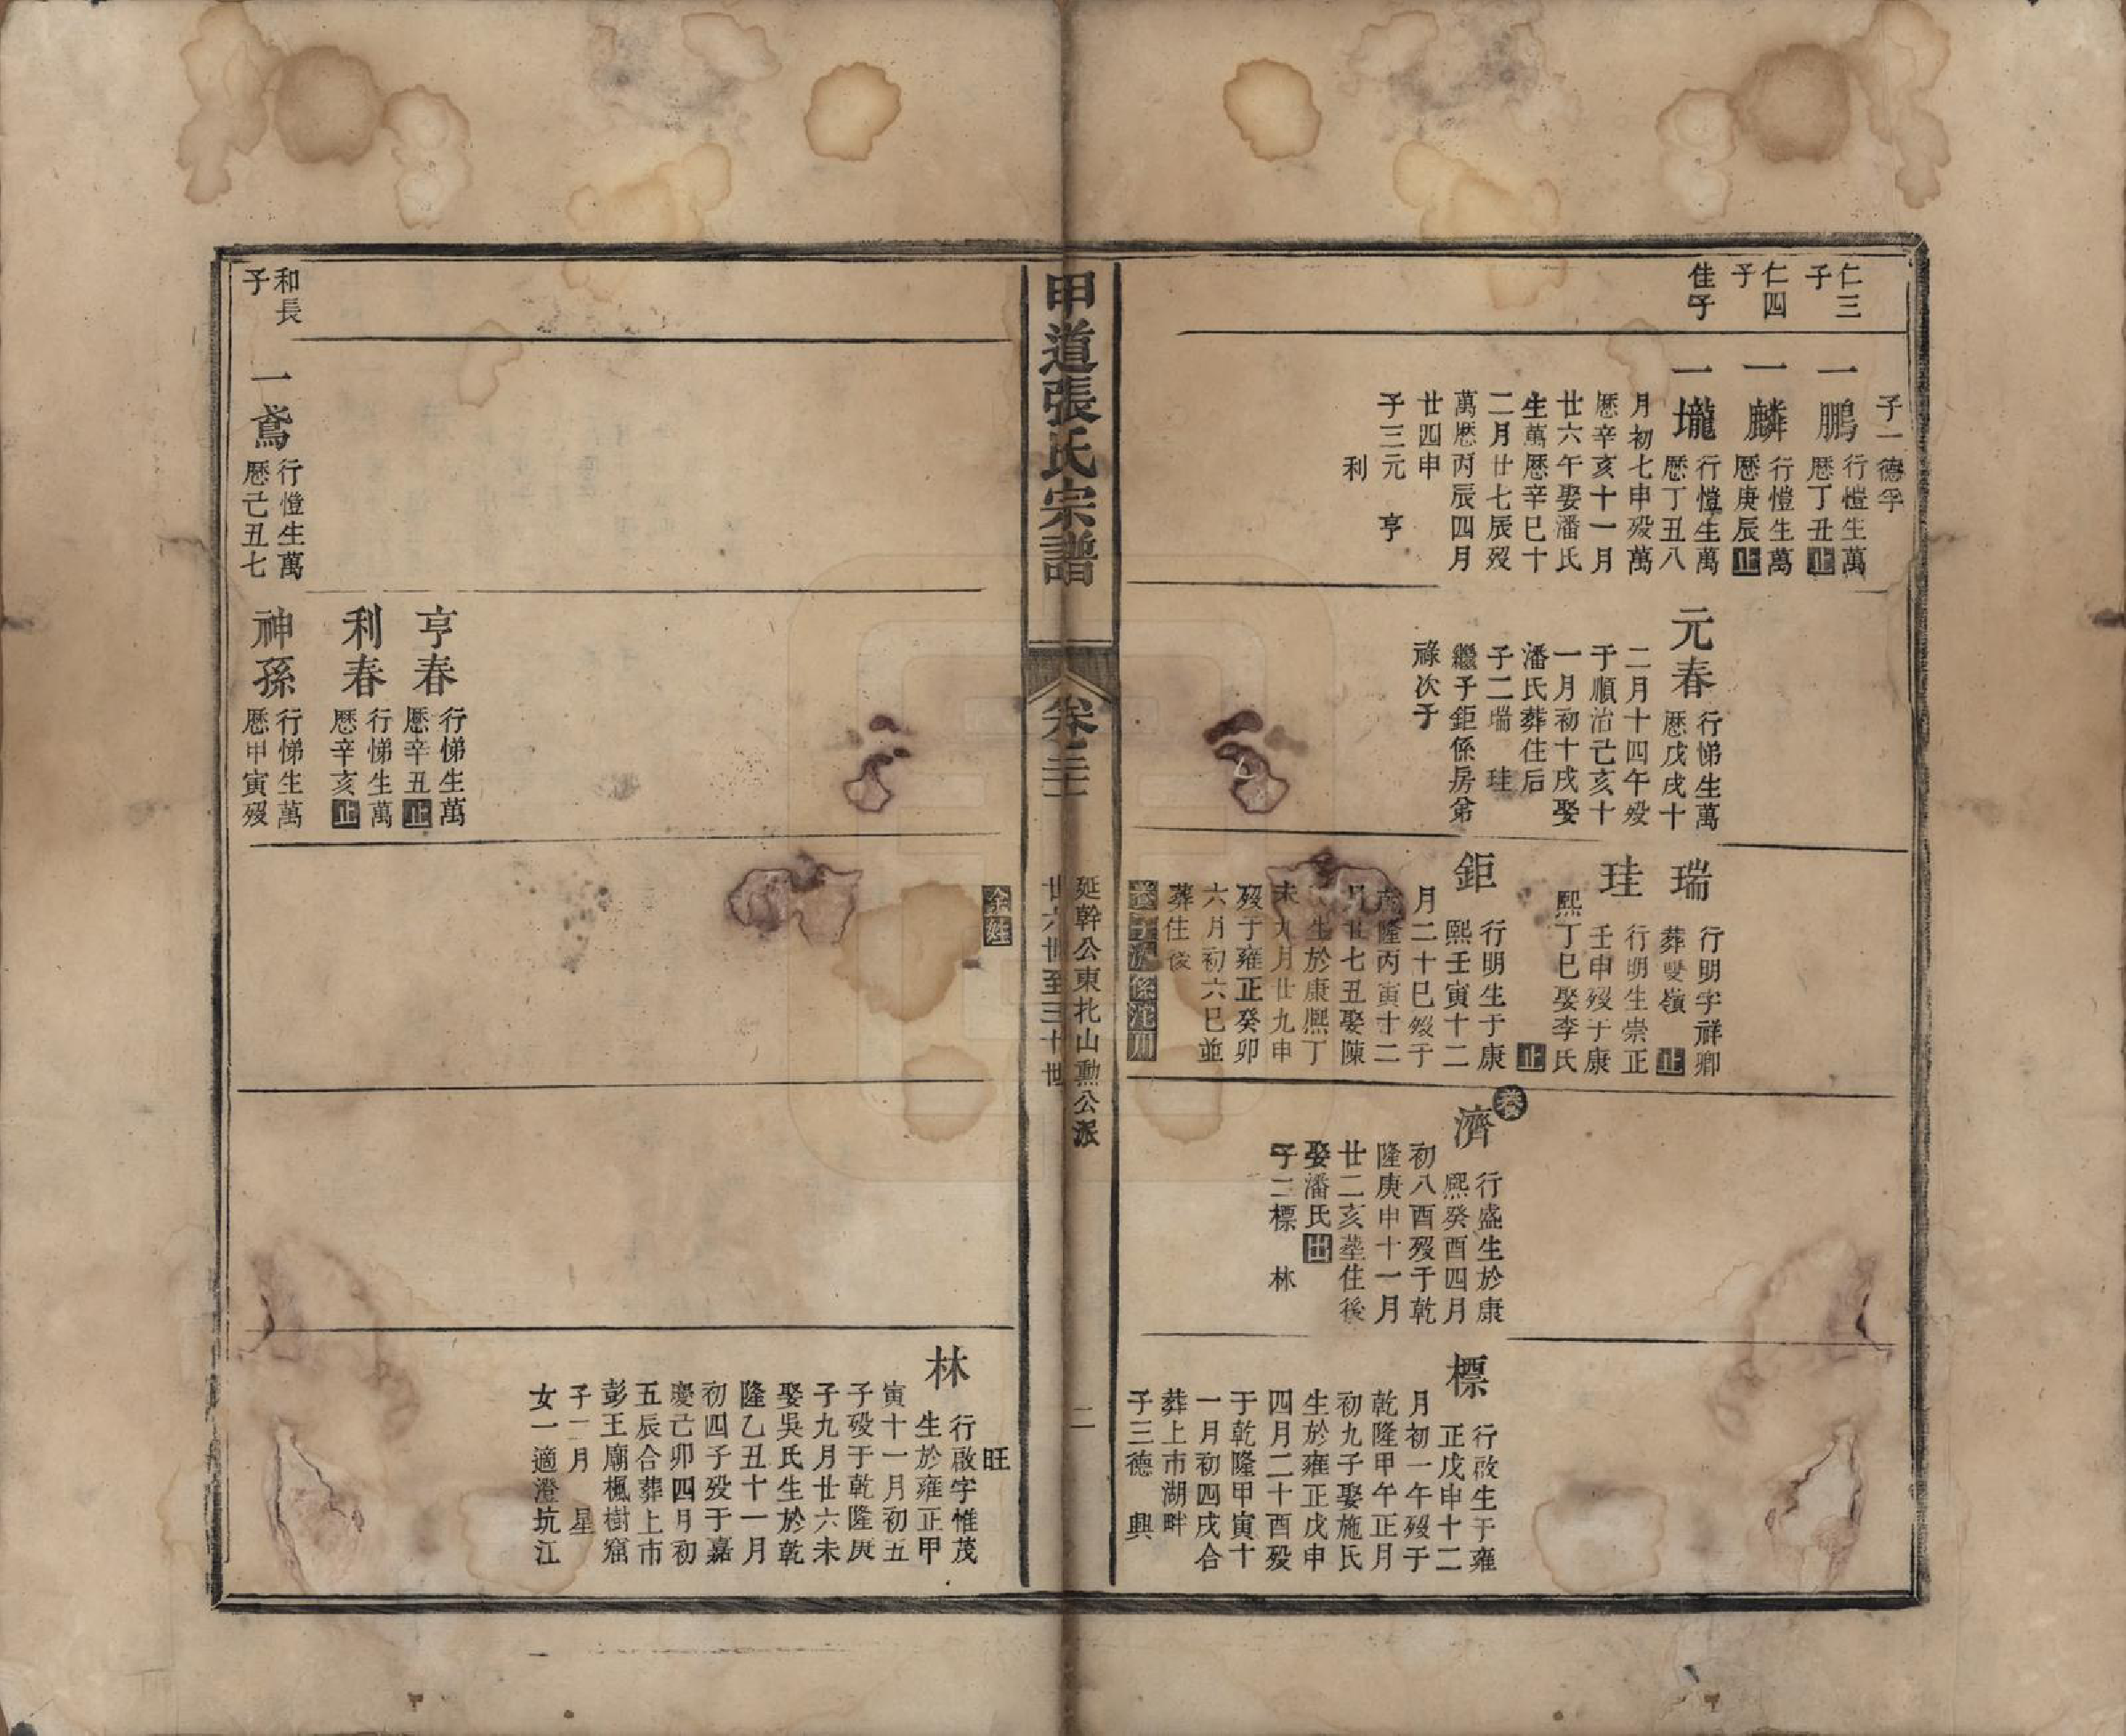 仁三
子
仁四
子
佳子
子一德孚
一鵬
行愷生萬
歷丁丑止
一麟
行愷生萬
歷庚辰止
一壠
行愷生萬
歷丁丑八
月初七申殁萬
歷辛亥十一月
廿六午娶潘氏
生萬歷辛巳十
二月廿七辰殁
萬歷丙辰四月
廿四申
子三元　亨
利
元春
行悌生萬
歷戊戌十
二月十四午殁
于順治己亥十
一月初十戌娶
潘氏葬住后
子二瑞　珪
繼子鉅係房弟
祿次子
瑞
行明字祥卿
葬雙嶺　止
珪
行明生崇正
壬申殁于康
熙丁巳娶李氏
止
鉅
行明生于康
熙壬寅十二
月二十巳殁于
隆丙寅十二
月廿七丑娶陳
生於康熙丁
未九月廿九申
殁于雍正癸卯
六月初六巳並
葬住後
養子濟係沈川
養
濟
行盛生於康
熙癸酉四月
初八酉殁于乾
隆庚申十一月
廿二亥塟住後
娶潘氏出
子二標　林
標
行啟生于雍
正戊申十二
月初一午殁于
乾隆甲午正月
初九子娶施氏
生於雍正戊申
四月二十酉殁
于乾隆甲寅十
一月初四戌合
葬上市湖畔
子三德　興
甲道張氏宗譜
卷三十二
延幹公東扎山勳公派
廿六世至三十世
二
余姓
旺
林
行啟字惟茂
生於雍正甲
寅十一月初五
子殁于乾隆庚
子九月廿六未
娶吳氏生於乾
隆乙丑十一月
初四子殁于嘉
慶己卯四月初
五辰合葬上市
彭王廟楓樹窟
子二月　星
女一適澄坑江
亨春
行悌生萬
歷辛丑止
利春
行悌生萬
歷辛亥止
和長
子
一鳶
行愷生萬
歷己丑七
神孫
行悌生萬
歷甲寅殁